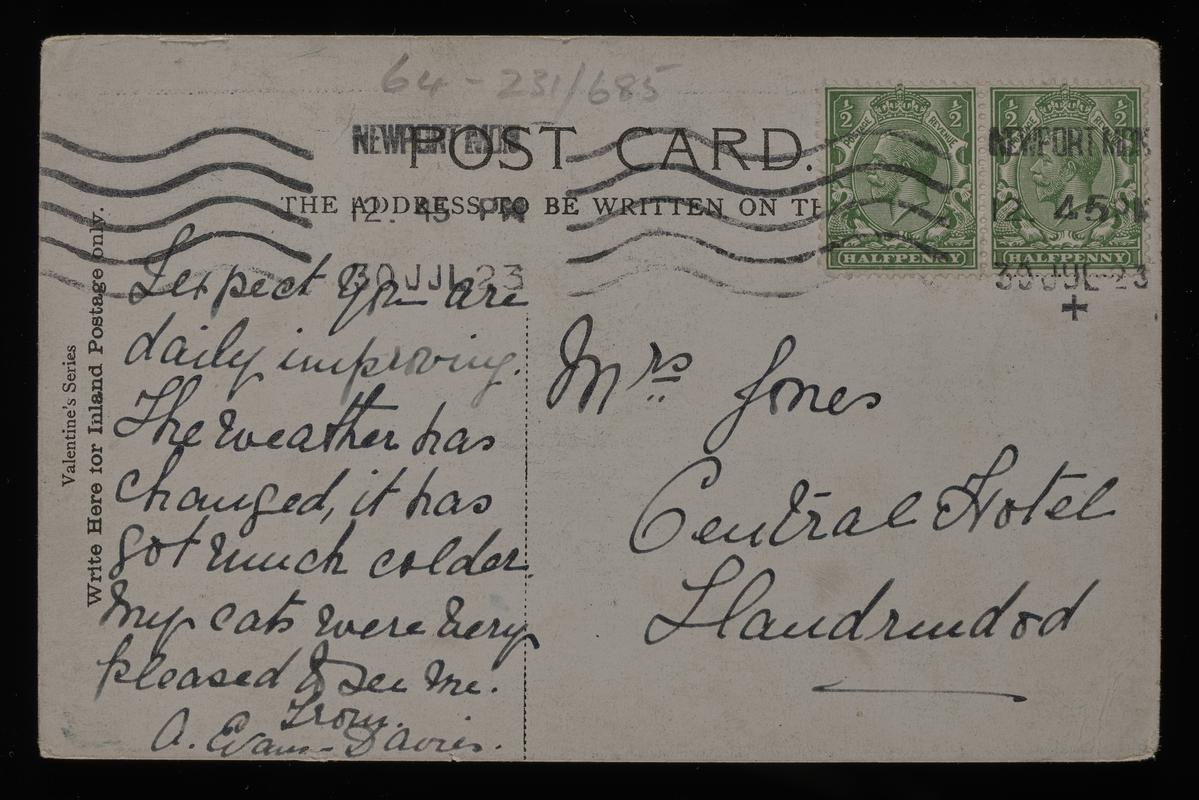 64 - 231/685
POST CARD.
THE ADDRESS TO BE WRITTEN ON TH
NEWPORT MON
12. 45 PM
30 JUL 23
NEWPORT MON
12 45 PM
30 JUL 23
½ ½
POSTAGE REVENUE
HALFPENNY
½ ½
HALFPENNY
Valentine's Series
Write Here for Inland Postage only.
I expect you are
daily improving.
The weather has
changed, it has
got much colder.
My cats were very
pleased to see me.
From.
A. Evans-Davies.
Mrs Jones
Central Hotel
Llandrindod